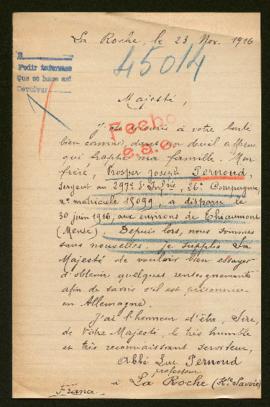 La Roche, le 23 Nov. 1916
45014
Pedir informes
Que se hace así
Majesté,
J'ai recours à votre haute
dans un deuil affreux
qui frappe ma famille. Mon
frère, Prosper Joseph Pernoud,
Sergent au 297e d'Inf., 26e Compagnie,
No matricule 15099, a disparu le
30 juin 1916, aux environs de Chaumont
(Meuse). Depuis lors, nous sommes
sans nouvelles. Je supplie Sa
Majesté de vouloir bien essayer
d'obtenir quelques renseignements
afin de savoir s'il est prisonnier
en Allemagne.
J'ai l'honneur d'être, Sire,
de Votre Majesté, le très humble
et très reconnaissant serviteur,
Abbé Luc Pernoud
professeur
à La Roche (Hte Savoie)
France